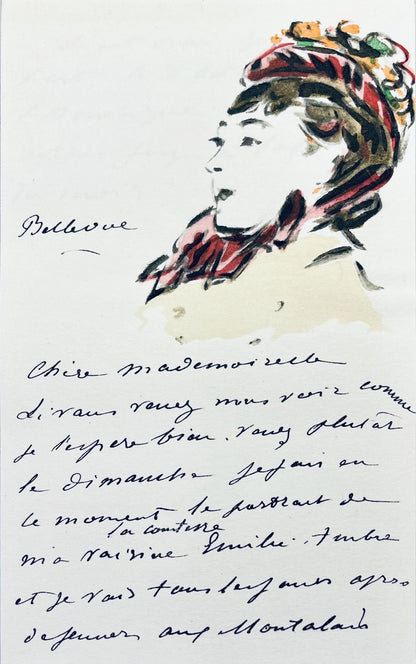 Bellevue
Chère mademoiselle
Si vous venez nous voir comme
je l'espère bien. venez plutôt
le dimanche je fais en
ce moment le portrait de
la comtesse
ma voisine Emilie. Ambre
et je vais tous les jours après
déjeuner aux Montalais